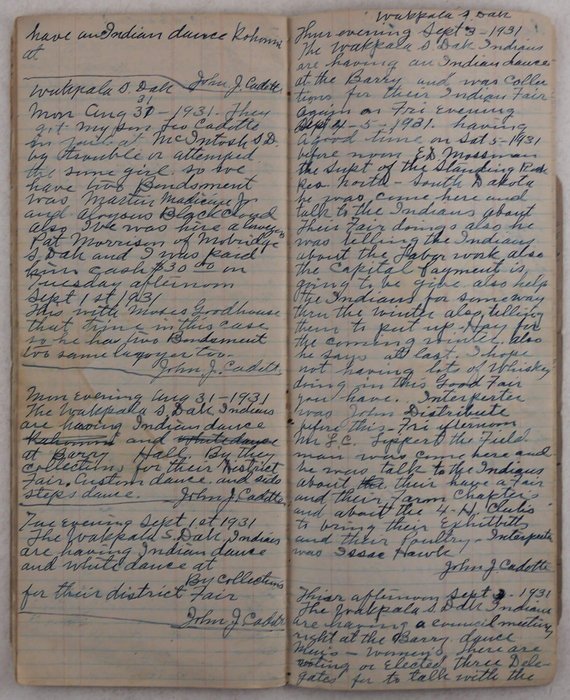 have an Indian dance Kahomni
at
Wakpala S. Dak John J. Cadotte
31
Mon Aug 30 - 1931. They
git my son Joe Cadotte
in Jail at McIntosh S.D.
by trouble or attempted
the same girl. so we
have two Bondsment
was Martin Medicine Jr
and Aloysous Black Cloud
also I've was hire a lawyer
Pat Morrison of Mobridge
S. Dak and I was paid
him cash $30.00 on
Tuesday afternoon
Sept 1st 1931
This with Moses Goodhouse
that time in this case
so he has two Bondsment
too same lawyer too.
John J. Cadotte
Mon Evening Aug 31 - 1931
The Wakpala S. Dak Indians
are having Indian dance
Kahomni and white dance
at Barry Hall. By they
collections for their District
Fair. Custom dance and side
steps dance. John J. Cadotte
Tue Evening Sept 1st 1931
The Wakpala S. Dak Indians
are having Indian dance
and white dance at
By collections
for their district Fair
John J. Cadotte
Wakpala S. Dak
Thur evening Sept 3 - 1931
The Wakpala S. Dak Indians
are having an Indian dance
at the Barry and was collec
tions for their Indian Fair
again on Fri evening
Sept 4 - 5 - 1931. having
a good time on Sat 5 - 1931
before noon E.D. Mossman
the Supt of the Standing Rock
Res. North - South Dakota
he was came here and
talk to the Indians about
Their Fair doings also he
was telling the Indians
about the Labor work also
the Capital payment is
going to be give. also help
the Indians for some way
thru the winter also telling
them to put up Hay for
the coming winter also
he says at last. I hope
not having lots of Whiskey
doing in this Good Fair
you have. Interperter
was John Distribute
before this - Fri afternoon
Mr. L.C. Lippert the Field
man was came here and
he was talk to the Indians
about the their have a Fair
and their Farm Chapters
and about the 4-H. Clubs
to bring their Exhibitts
and their Poultry - Interperter
was Issac Hawk
John J. Cadotte
Thur afternoon Sept 3 - 1931
The Wakpala S. Dak Indians
are having a council meeting
right at the Barry dance
Men's - Women's there are
voting or elected three Dele-
gates for to talk with the